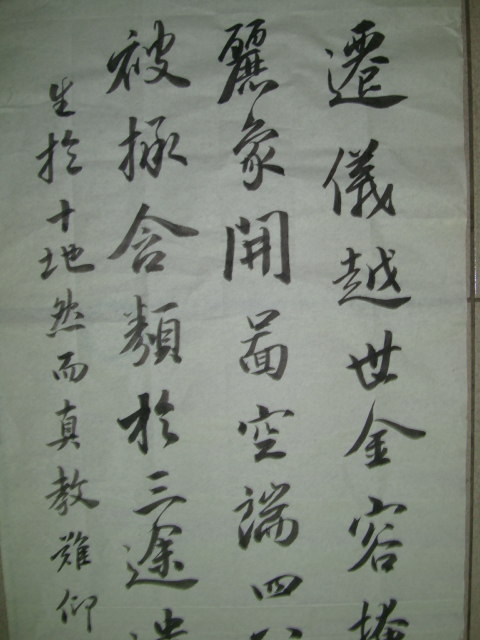 遷儀越世金容掩
麗象開圖空端四
被拯含類於三途
生於十地然而真教難仰